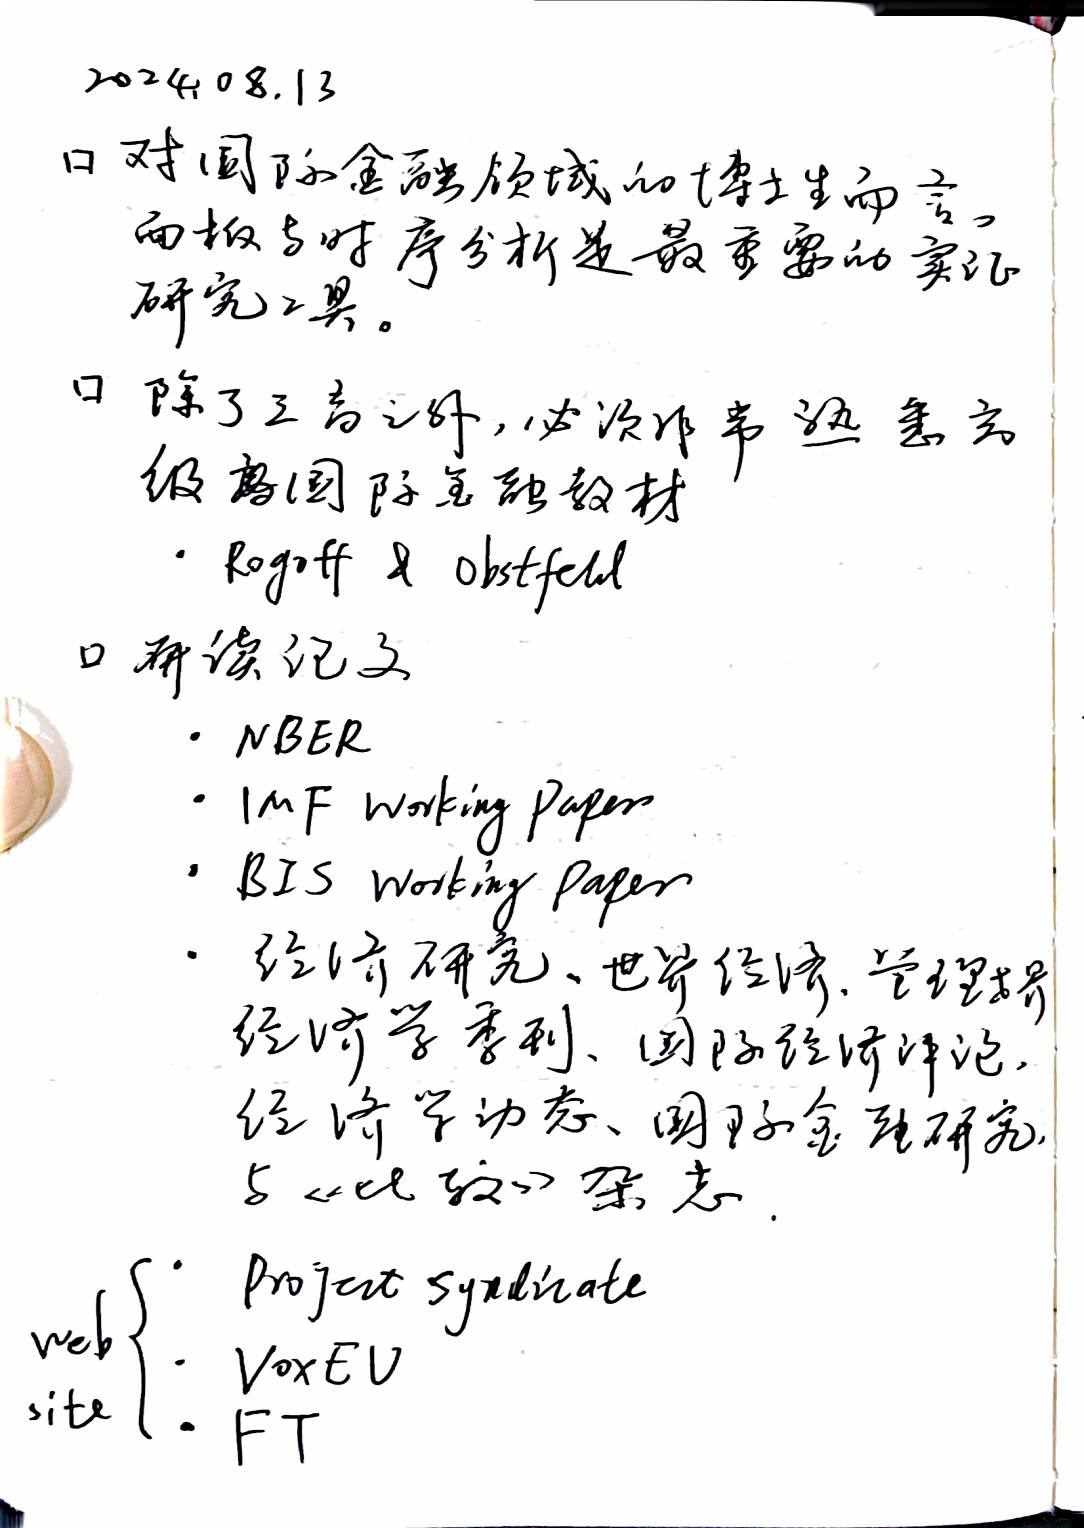 2024.08.13
口 对国际金融领域的博士生而言,
面板与时序分析是最重要的实证
研究工具。
口 除了三高之外,必须非常熟悉高
级国际金融教材
· Rogoff & Obstfeld
口 研读论文
· NBER
· IMF Working Paper
· BIS Working Paper
· 经济研究、世界经济、管理世界
经济学季刊、国际经济评论、
经济学动态、国际金融研究、
与《比较》杂志.
· Project Syndicate
web
· VoxEU
site
· FT